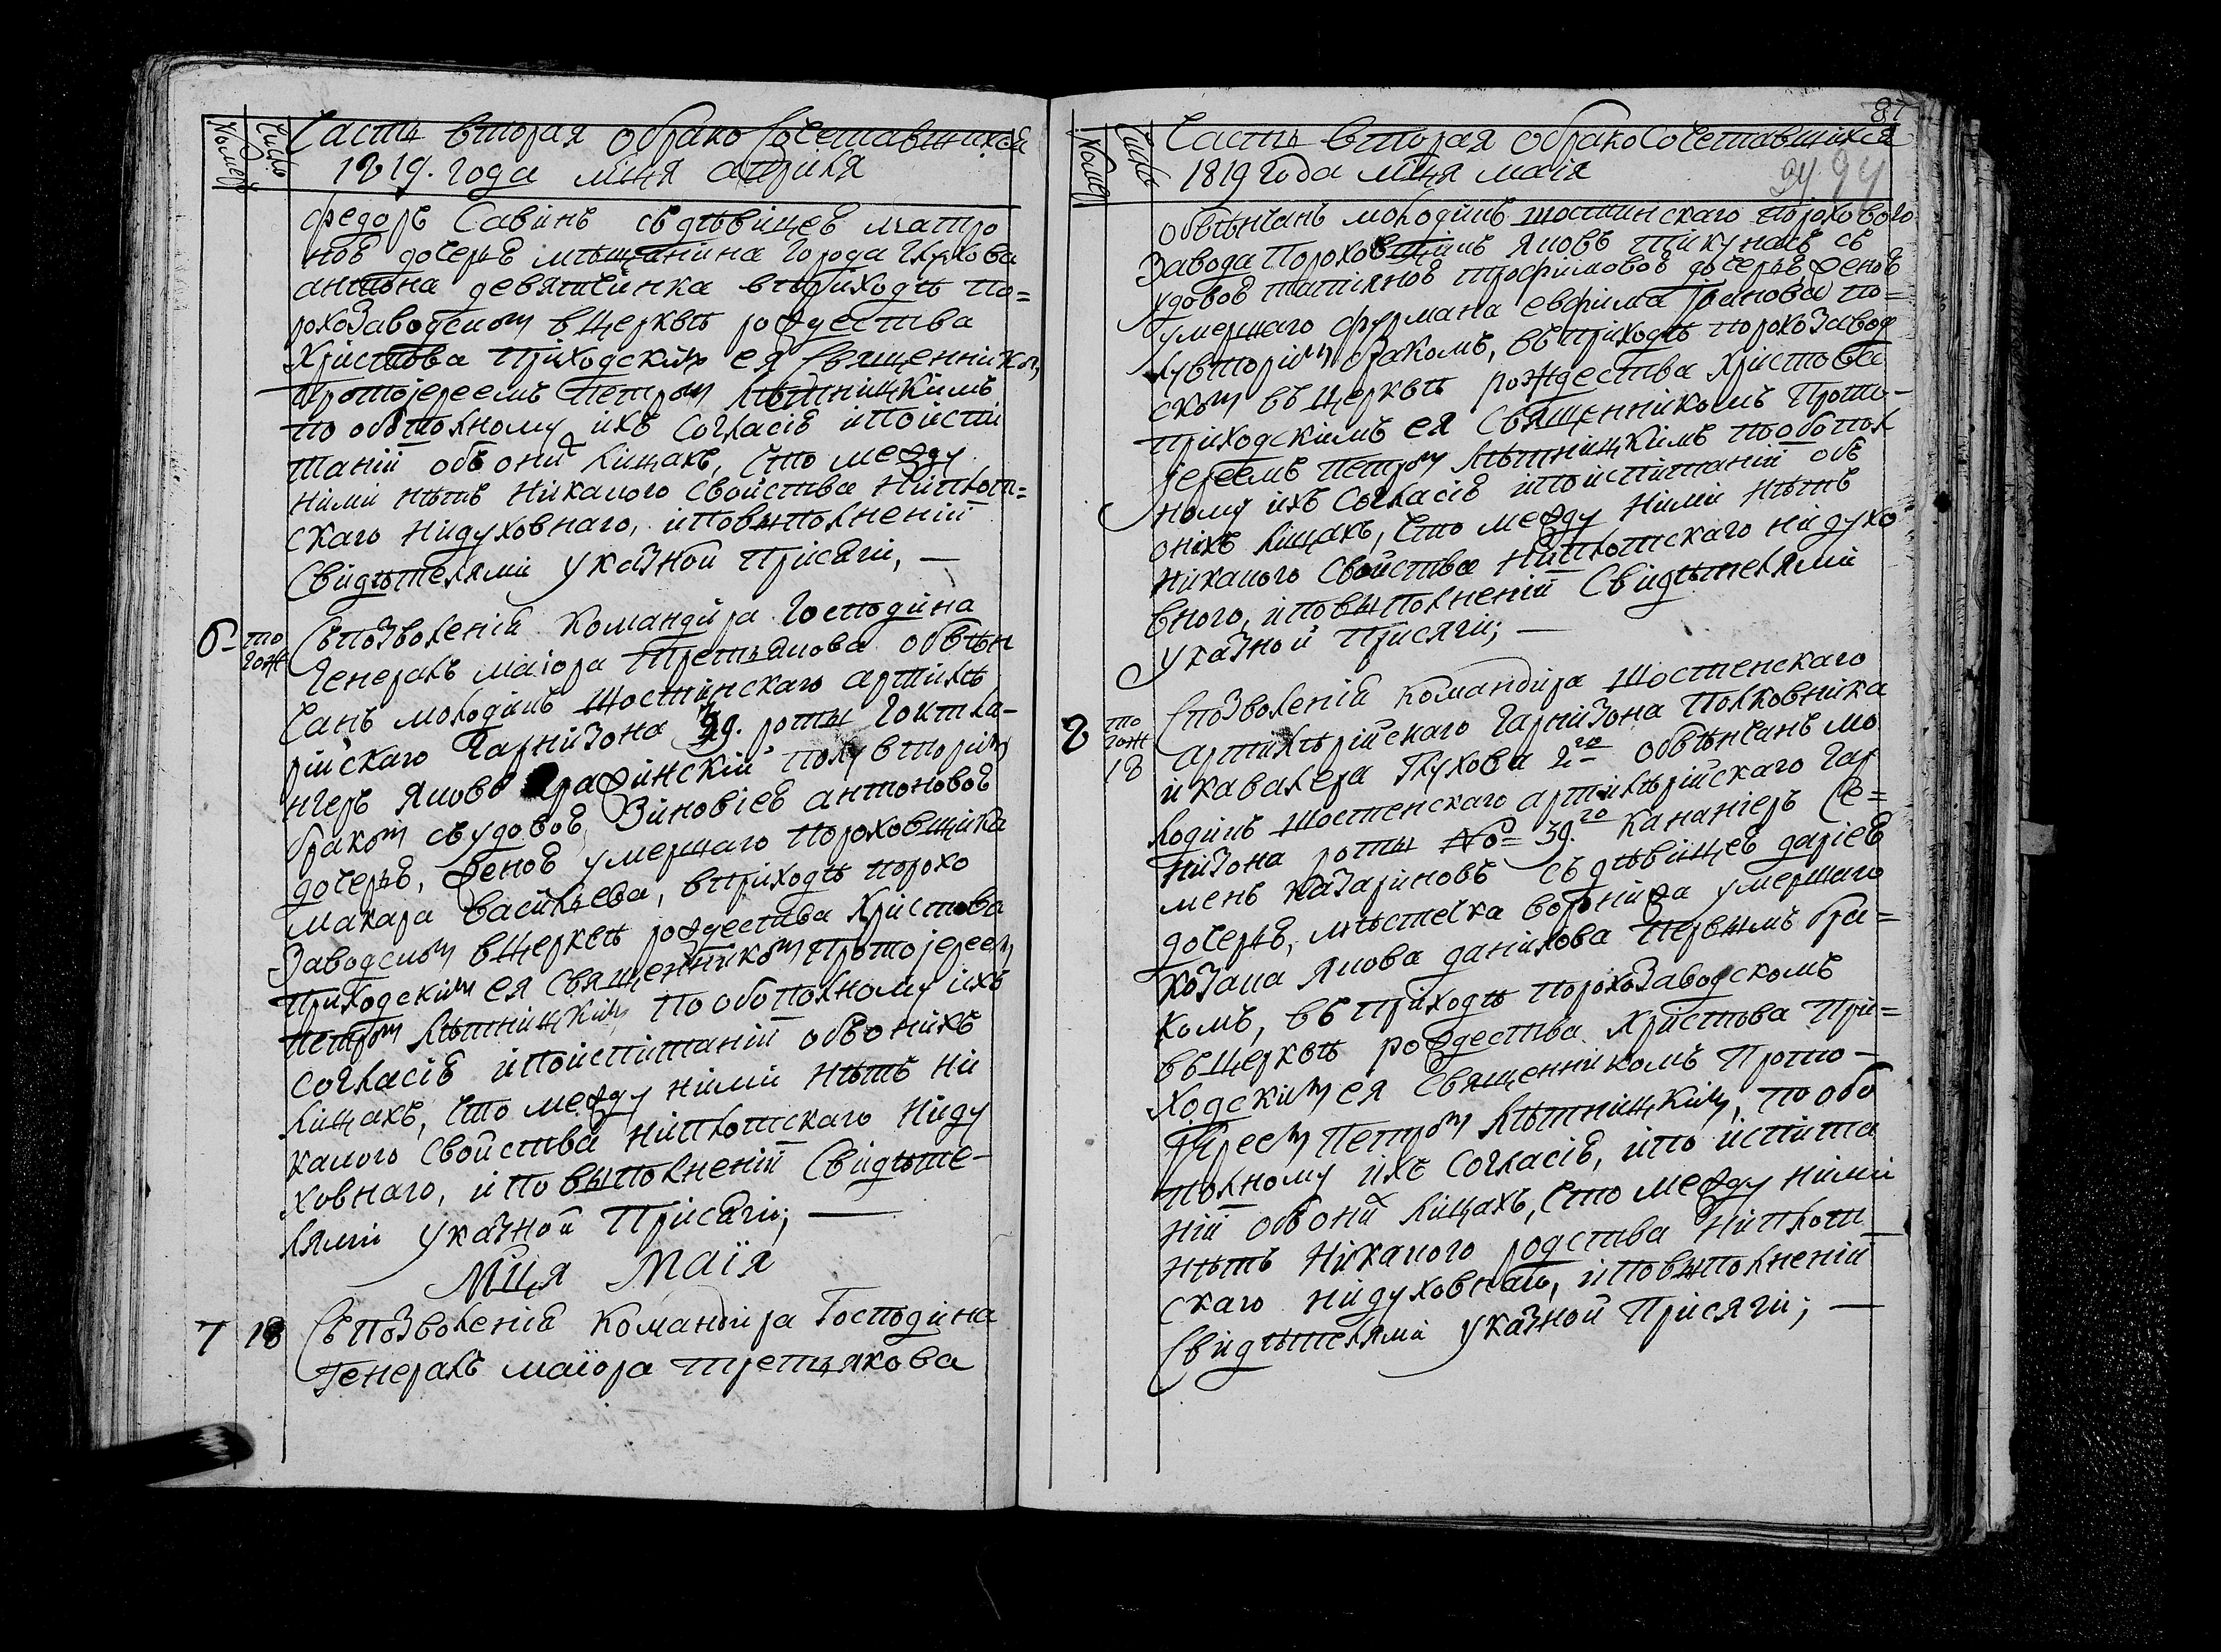 Номеръ
Число
Часть вторая о бракосочетавшихся
1819. года м҃ця априля
федоръ Савинъ съ дѣвицеѣ матро
ноѣ дочерьѣ мѣщанина города Глухова
антона девятчинка в приходѣ по=
рохозаводском в церквѣ рождества
Христова приходским ея священником
протоіереемъ петром Лѣтницкимъ
по обополному ихъ согласіѣ и по испи
таній объ оних лицахъ, что между
ними нѣтъ никакого свойства ни плот=
скаго ни духовнаго, и по выполненій
свидѣтелями указной присяги, —
6 то гож Съ позволеніѣ командира Господина
Генералъ маіора Третьякова обвѣн
чанъ молодикъ шостинскаго артилѣ
рійскаго гарнизона 39. роты гонтла-
нгеръ яковъ гражинский полувторим
браком съ удовоѣ Зиновіеѣ антоновоѣ
дочерьѣ, женоѣ умершаго пороховщика
макара васильева, в приходѣ порохо
заводском в церквѣ рождества Христова
приходским ея священником протоіереем
петром Лѣтницким по обополному ихъ
согласіѣ и по испитаній объ онихъ
лицахъ, что между ними нѣтъ ни
какого свойства ни плотскаго ни ду
ховнаго, и по выполненій свидѣте-
лями указной присяги; —
М҃ця маія
7 18 Съ позволеніѣ командира Господина
Генералъ маіора третьякова
87
Номеръ
Число
Часть вторая о бракосочетавшихся
1819 года м҃ця маія
94 94
обвѣнчанъ молодикъ шостинскаго порохового
завода пороховщикъ яковъ пикуналъ съ
удовоѣ татіяноѣ трофимовоѣ дочерьѣ женоѣ
умершаго фурмана евфима іванова по=
лувторим бракомъ, въ приходѣ порохозавод
ском въ церквѣ рождества Христова
приходскимъ ея священникомъ прото-
іереемъ петром Лѣтницкимъ по обопол
ному ихъ согласіѣ и по испитаній объ
онихъ лицахъ, что между ними нѣтъ
никакого свойства ни плотскаго ни духо
вного, и по выполненій свидѣтелями
указной присяги; —
8 то гож 18 С позволеніѣ командира шостенскаго
артилѣрійскаго гарнизона полковника
и кавалера Глухова 2го обвѣнчанъ мо
лодикъ шостенскаго артилѣрійскаго гар
низона роты №= 39.го канаnіеръ се=
менъ казариновъ съ дѣвицеѣ даріеѣ
дочерьѣ, мѣстечка воронижа умершаго
козака якова данилова первымъ бра=
комъ, въ приходѣ порохозаводскомъ
въ церквѣ рождества Христова при=
ходским ея священникомъ прото-
іереем петром Лѣтницким, по обо
полному ихъ согласіѣ, и по испита
ній объ оних лицахъ, что между ними
нѣтъ никакого родства ни плот
скаго ни духовнаго, и по выполненій
свидѣтелями указной присяги; —